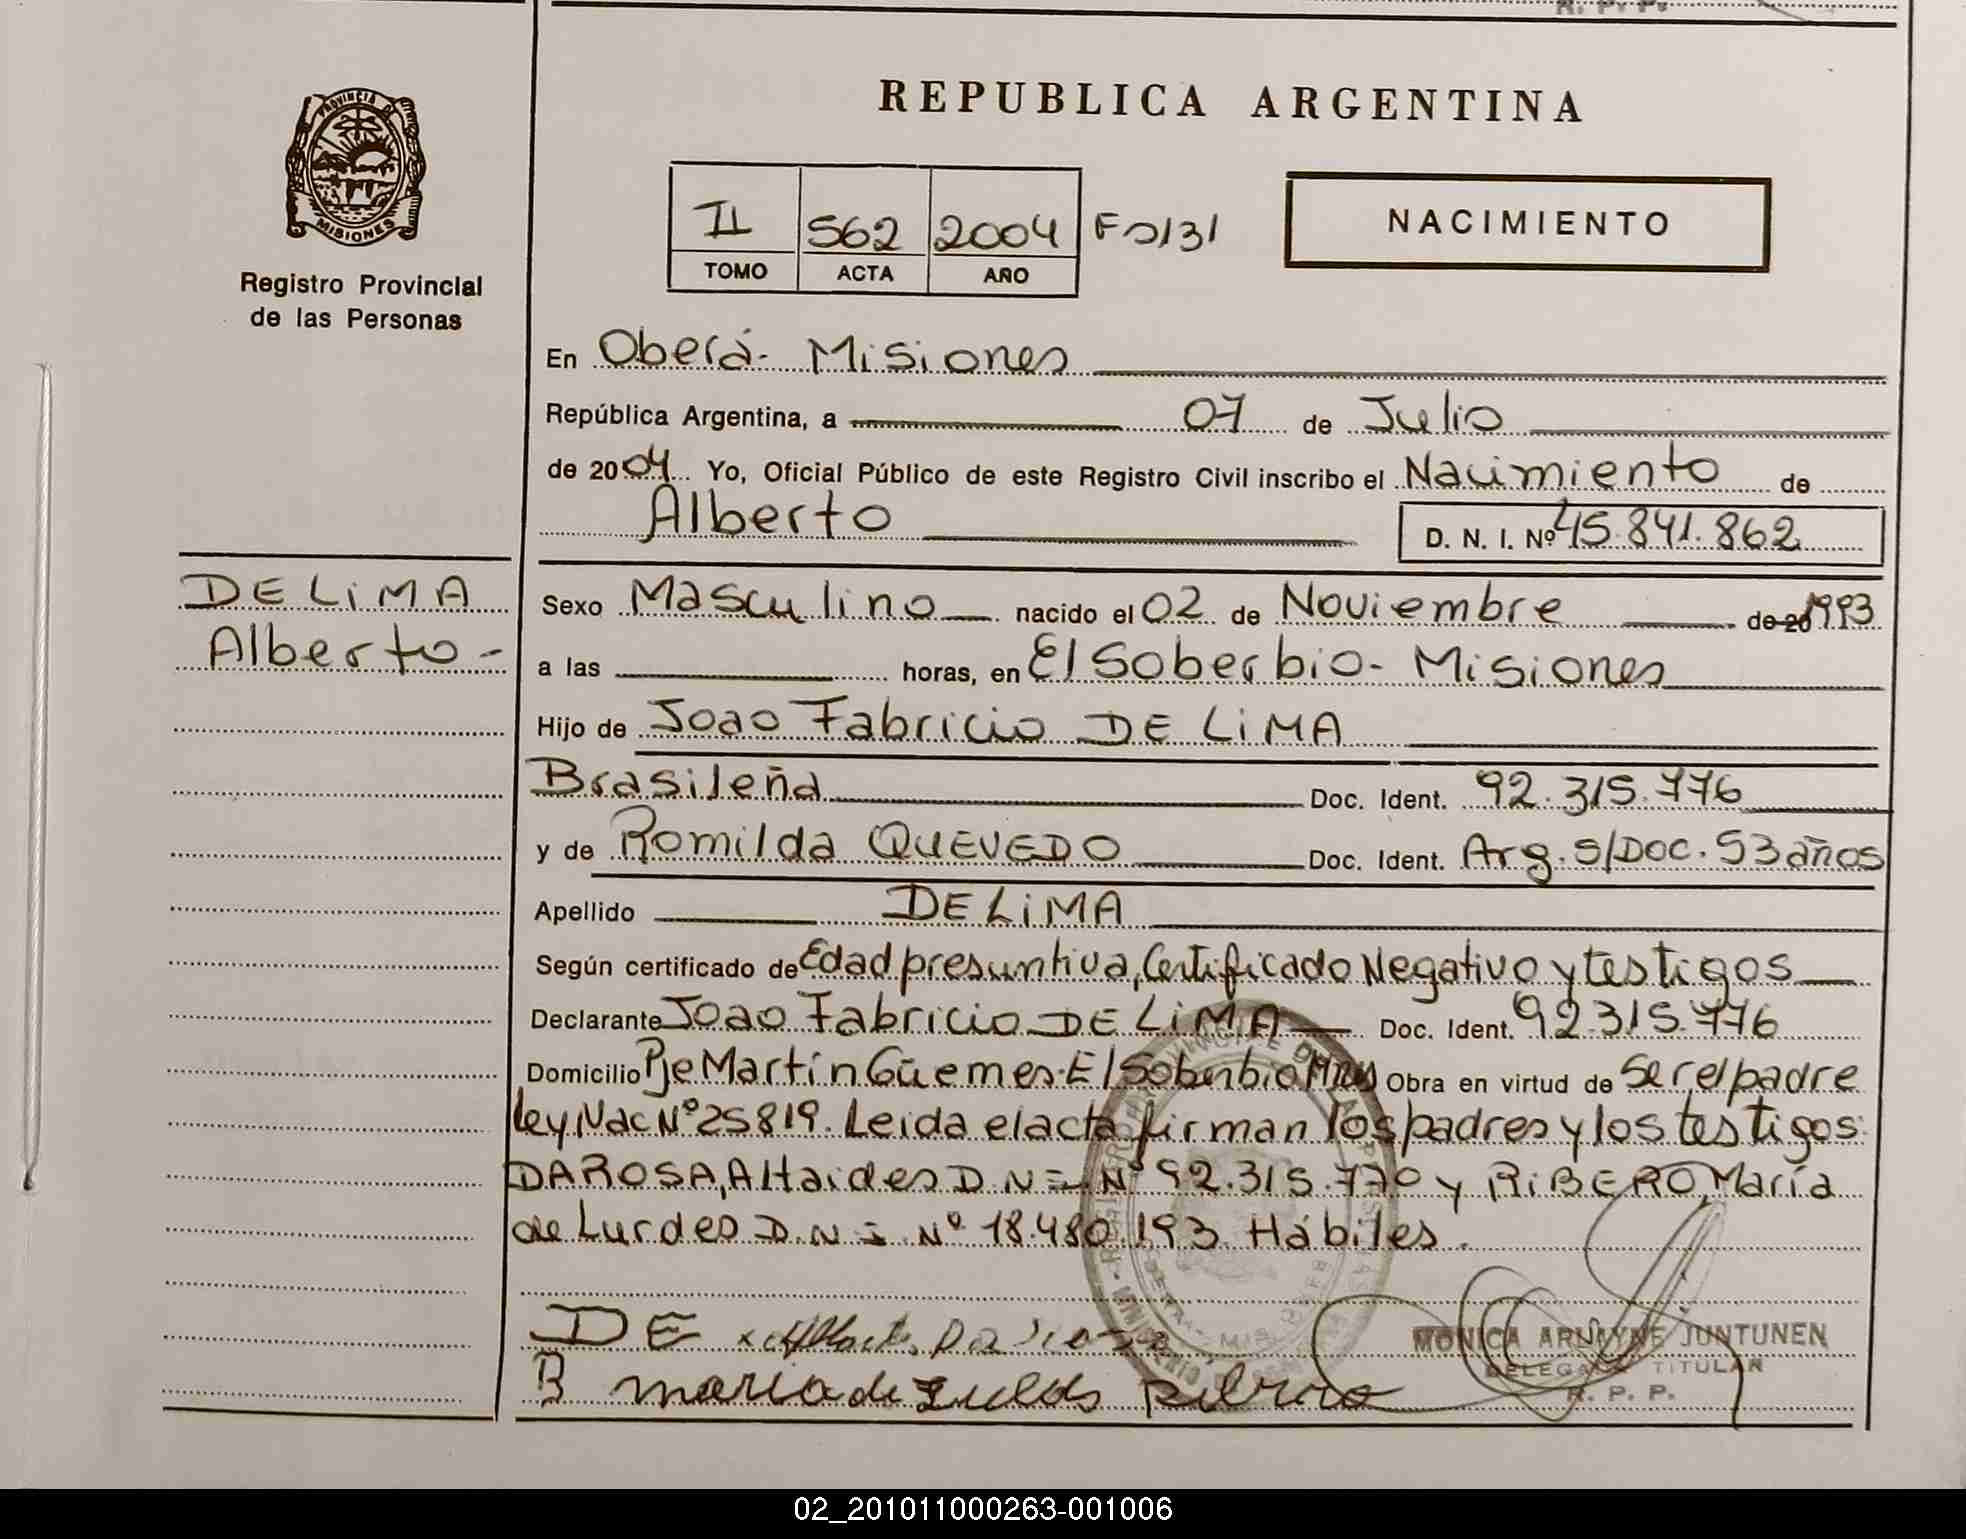 R. P. P.
PROVINCIA DE
MISIONES
Registro Provincial
de las Personas
REPUBLICA ARGENTINA
II 562 2004 Fº 131
TOMO ACTA AÑO
NACIMIENTO
En Oberá - Misiones
República Argentina, a 07 de Julio
de 2004 Yo, Oficial Público de este Registro Civil inscribo el Nacimiento de
Alberto D. N. I. Nº 45.841.862
DE LiMA
Alberto -
Sexo Masculino nacido el 02 de Noviembre de 20 1993
a las horas, en El Soberbio - Misiones
Hijo de Joao Fabricio DE LiMA
Brasileña Doc. Ident. 92.315.776
y de Romilda QUEVEDO Doc. Ident. Arg. S/Doc. 53 años
Apellido DE LiMA
Según certificado de Edad presuntiva, Certificado Negativo y testigos
Declarante Joao Fabricio DE LiMA Doc. Ident. 92.315.776
Domicilio Pje Martín Güemes. El Soberbio Mnes Obra en virtud de Ser el padre
ley Nac Nº 25819. Leida el acta firman los padres y los testigos:
DA ROSA, Altaides D.N.I. Nº 92.315.770 y RiBERO, María
de Lurdes D.N.I. Nº 18.480.193 Hábiles.
DE
MONICA JUNTUNEN
DELEGADA TITULAR
B maria de R. P. P.
02_201011000263-001006